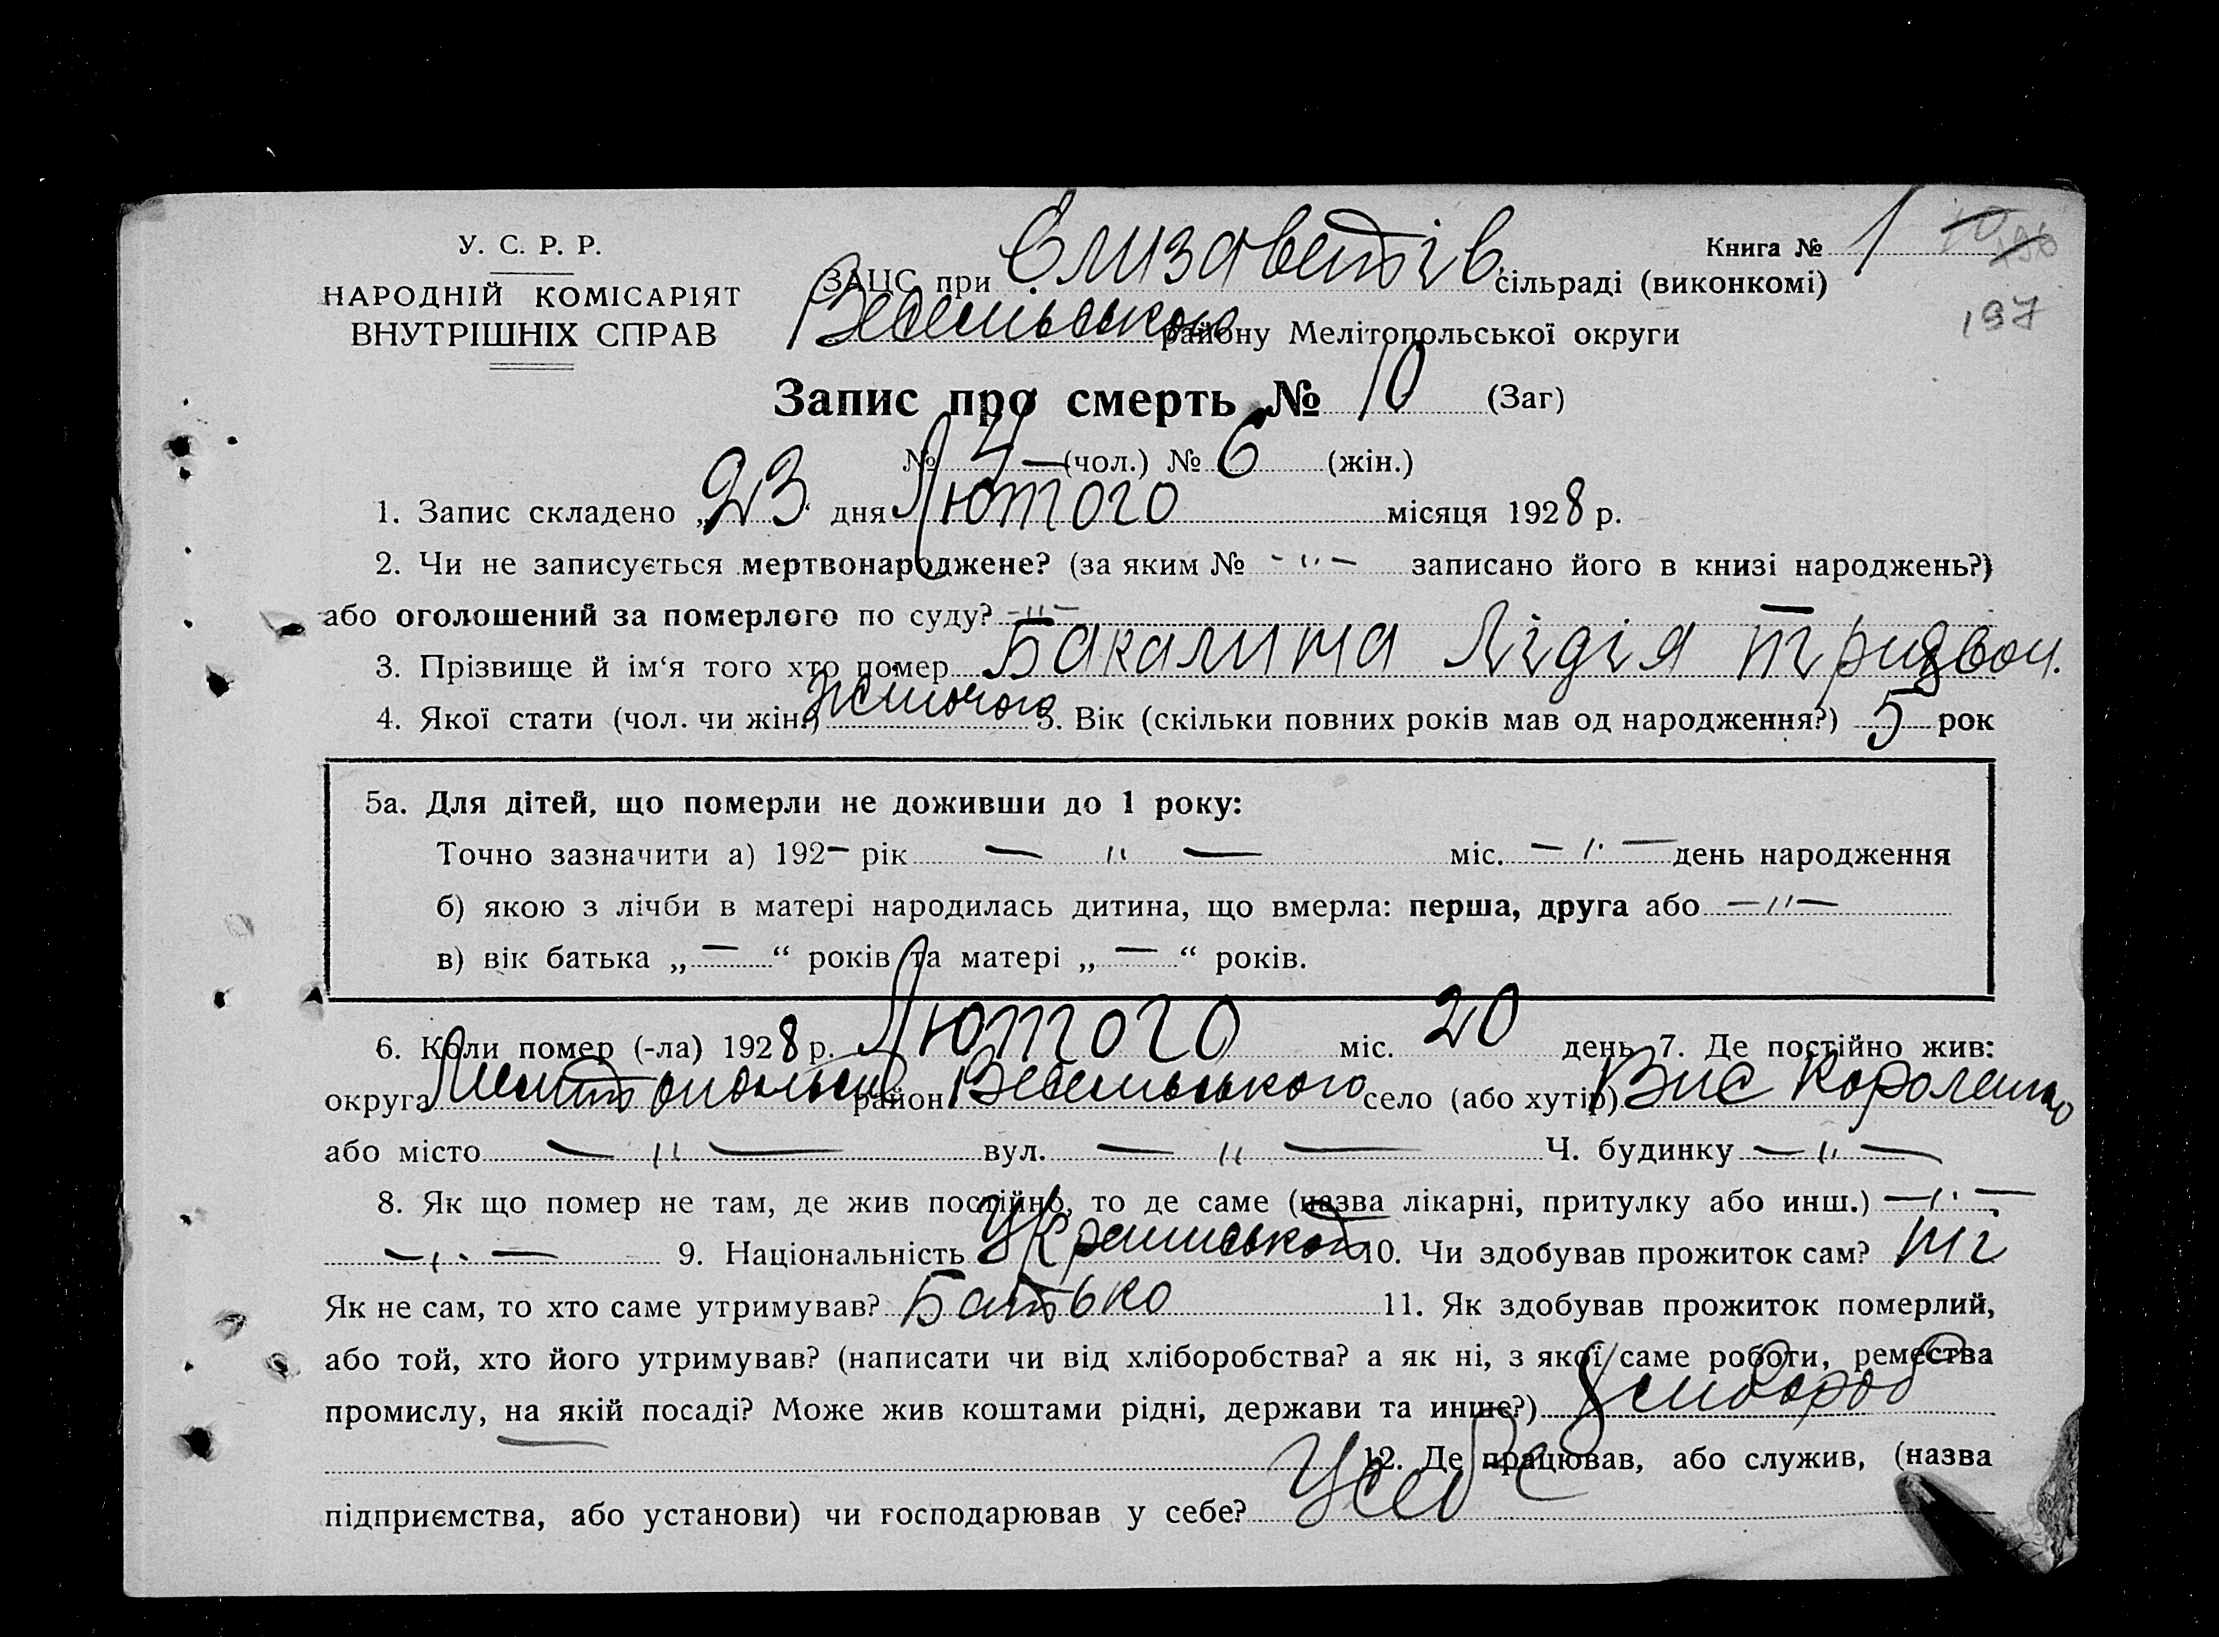 У. С. Р. Р.
НАРОДНІЙ КОМІСАРІЯТ
ВНУТРІШНІХ СПРАВ
Книга № 1
197
ЗАЦС при Єлизаветів. сільраді (виконкомі)
Весельського району Мелітопольської округи
Запис про смерть № 10 (Заг)
№ 4 — (чол.) № 6 (жін.)
1. Запис складено „23“ дня Лютого місяця 1928 р.
2. Чи не записується мертвонароджене? (за яким № -"- записано його в книзі народжень?)
або оголошений за померлого по суду? -"-
3. Прізвище й ім‘я того хто помер Бакалина Лідія
4. Якої стати (чол. чи жін.) жіночого 5. Вік (скільки повних років мав од народження?) 5 рок
5а. Для дітей, що померли не доживши до 1 року:
Точно зазначити а) 192— рік — " — міс. — " — день народження
б) якою з лічби в матері народилась дитина, що вмерла: перша, друга або —"—
в) вік батька „—“ років та матері „—“ років.
6. Коли помер (-ла) 1928 р. Лютого міс. 20 день 7. Де постійно жив:
округа район Весельського село (або хутір)
або місто — " — вул. — " — Ч. будинку — " —
8. Як що помер не там, де жив постійно, то де саме (назва лікарні, притулку або инш.) — " —
— " — 9. Національність 10. Чи здобував прожиток сам? ні
Як не сам, то хто саме утримував? Батько 11. Як здобував прожиток померлий,
або той, хто його утримував? (написати чи від хліборобства? а як ні, з якої саме роботи, ремества
промислу, на якій посаді? Може жив коштами рідні, держави та инше?)
12. Де працював, або служив, (назва
підприємства, або установи) чи господарював у себе? У себе